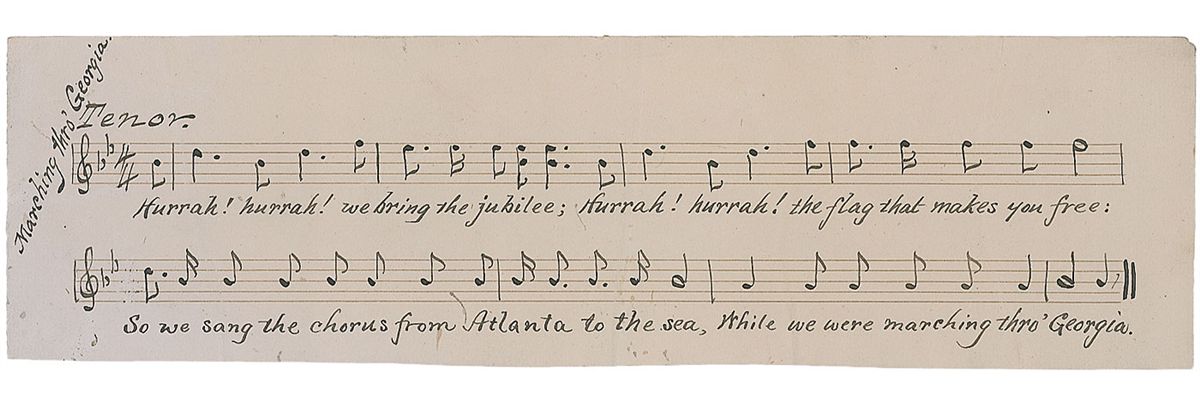 Marching thro' Georgia.
Tenor.
Hurrah! hurrah! we bring the jubilee; Hurrah! hurrah! the flag that makes you free:
So we sang the chorus from Atlanta to the sea, While we were marching thro' Georgia.